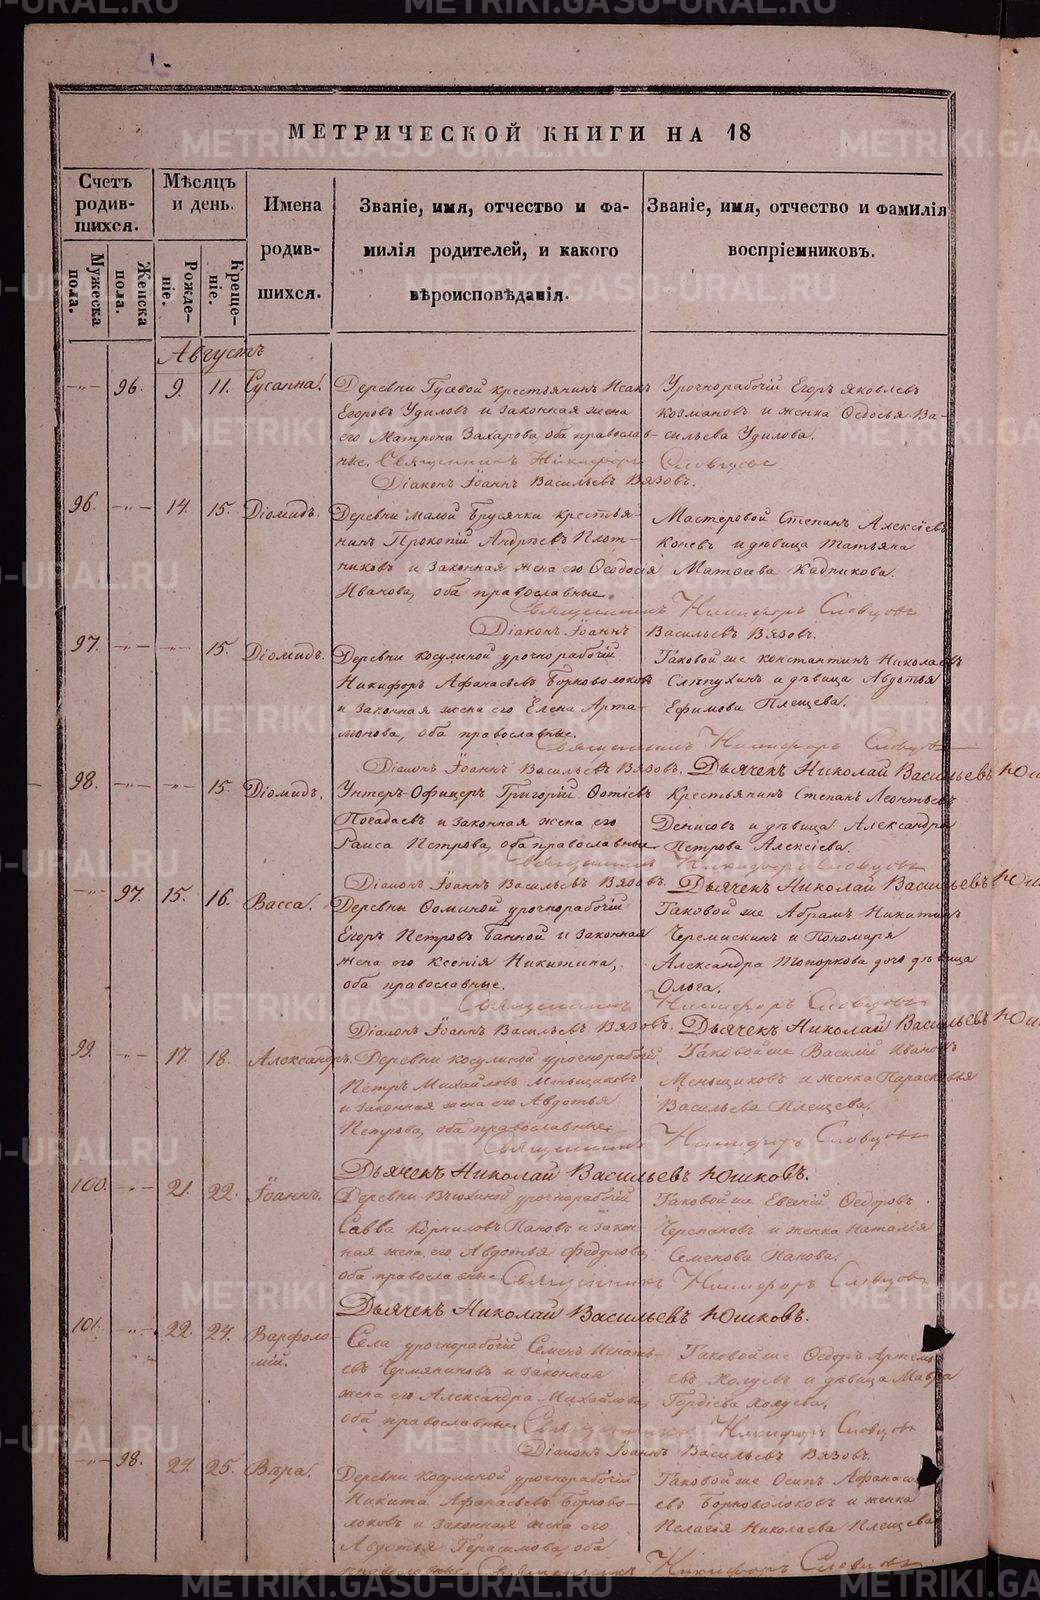 МЕТРИЧЕСКОЙ КНИГИ НА 18
Счетъ родив-шихся.
Мужеска пола.
Женска пола.
Мѣсяцъ и день.
Рожде-ніе.
Креще-ніе.
Имена родив-шихся.
Званіе, имя, отчество и фа-
милія родителей, и какого
вѣроисповѣданія.
Званіе, имя, отчество и фамилія
воспріемниковъ.
Августъ
96. 9. 11. Сусанна.
Деревни Гусевой крестьянинъ Исакъ
Егоровъ Удиловъ и законная жена
его Матрона Захарова, оба православ-
ные. Священникъ Никифоръ Словцовъ
Урочнорабочій Егоръ Яковлевъ
Козмановъ и женка Ѳедосья Ва-
сильева Удилова.
Діаконъ Іоаннъ Васильевъ Вязовъ.
96. 14. 15. Діомидъ.
Деревни Малой Брусянки крестья-
нинъ Прокопій Андреевъ Плот-
никовъ и законная жена его Ѳеодосія
Иванова, оба православные.
Мастеровой Степанъ Алексіевъ
Коневъ и дѣвица Татьяна
Матѳеева Кадникова.
Священникъ Никифоръ Словцовъ
Діаконъ Іоаннъ Васильевъ Вязовъ.
97. 15. Діомидъ.
Деревни Косулиной урочнорабочій
Никифоръ Афанасьевъ Борноволоковъ
и законная жена его Елена Арта-
монова, оба православные.
Таковой же Константинъ Николаевъ
Слѣпухинъ и дѣвица Авдотья
Ефимова Плещева.
Священникъ Никифоръ Словцовъ
Діаконъ Іоаннъ Васильевъ Вязовъ. Дьячекъ Николай Васильевъ Юш
98. 15. Діомидъ.
Унтеръ-Офицеръ Григорій Фотіевъ
Погадаевъ и законная жена его
Раиса Петрова, оба православные
Крестьянинъ Степанъ Леонтьевъ
Денисовъ и дѣвица Александра
Петрова Алексіева.
Священникъ Никифоръ Словцовъ
Діаконъ Іоаннъ Васильевъ Вязовъ. Дьячекъ Николай Васильевъ Юш
97. 15. 16. Васса.
Деревни Ѳоминой урочнорабочій
Егоръ Петровъ Банной и законная
жена его Ксенія Никитина,
оба православные.
Таковой же Абрамъ Никитинъ
Черемискинъ и Пономаря
Александра Топоркова дочь дѣвица
Ольга.
Священникъ Никифоръ Словцовъ
Діаконъ Іоаннъ Васильевъ Вязовъ. Дьячекъ Николай Васильевъ Юш
99. 17. 18. Александръ.
Деревни Косулиной урочнорабочій
Петръ Михайловъ Меньщиковъ
и законная жена его Авдотья
Петрова, оба православные.
Таковой же Василій Ивановъ
Меньщиковъ и женка Парасковья
Васильева Плещева.
Священникъ Никифоръ Словцовъ
Дьячекъ Николай Васильевъ Юшковъ.
100. 21. 22. Іоаннъ.
Деревни Вьюхиной урочнорабочій
Савва Корниловъ Пановъ и закон-
ная жена его Авдотья Федулова,
оба православные
Таковой же Евгеній Ѳедоровъ
Черепановъ и женка Наталія
Семенова Панова.
Священникъ Никифоръ Словцовъ
Дьячекъ Николай Васильевъ Юшковъ.
101. 22. 24. Варфоло-
мій.
Села урочнорабочій Семенъ Игнать-
евъ Чермяниновъ и законная
жена его Александра Михайлова,
оба православные.
Таковой же Ѳедоръ Артемь-
евъ Колуевъ и дѣвица Мавра
Гордіева Колуева.
Священникъ Никифоръ Словцовъ
Діаконъ Іоаннъ Васильевъ Вязовъ.
98. 24. 25. Вѣра.
Деревни Косулиной урочнорабочій
Никита Афанасьевъ Борново-
локовъ и законная жена его
Авдотья Герасимова, оба
православные.
Таковой же Осипъ Афанась-
евъ Борноволоковъ и женка
Пелагія Николаева Плещева
Священникъ Никифоръ Словцовъ
METRIKI.GASO-URAL.RU